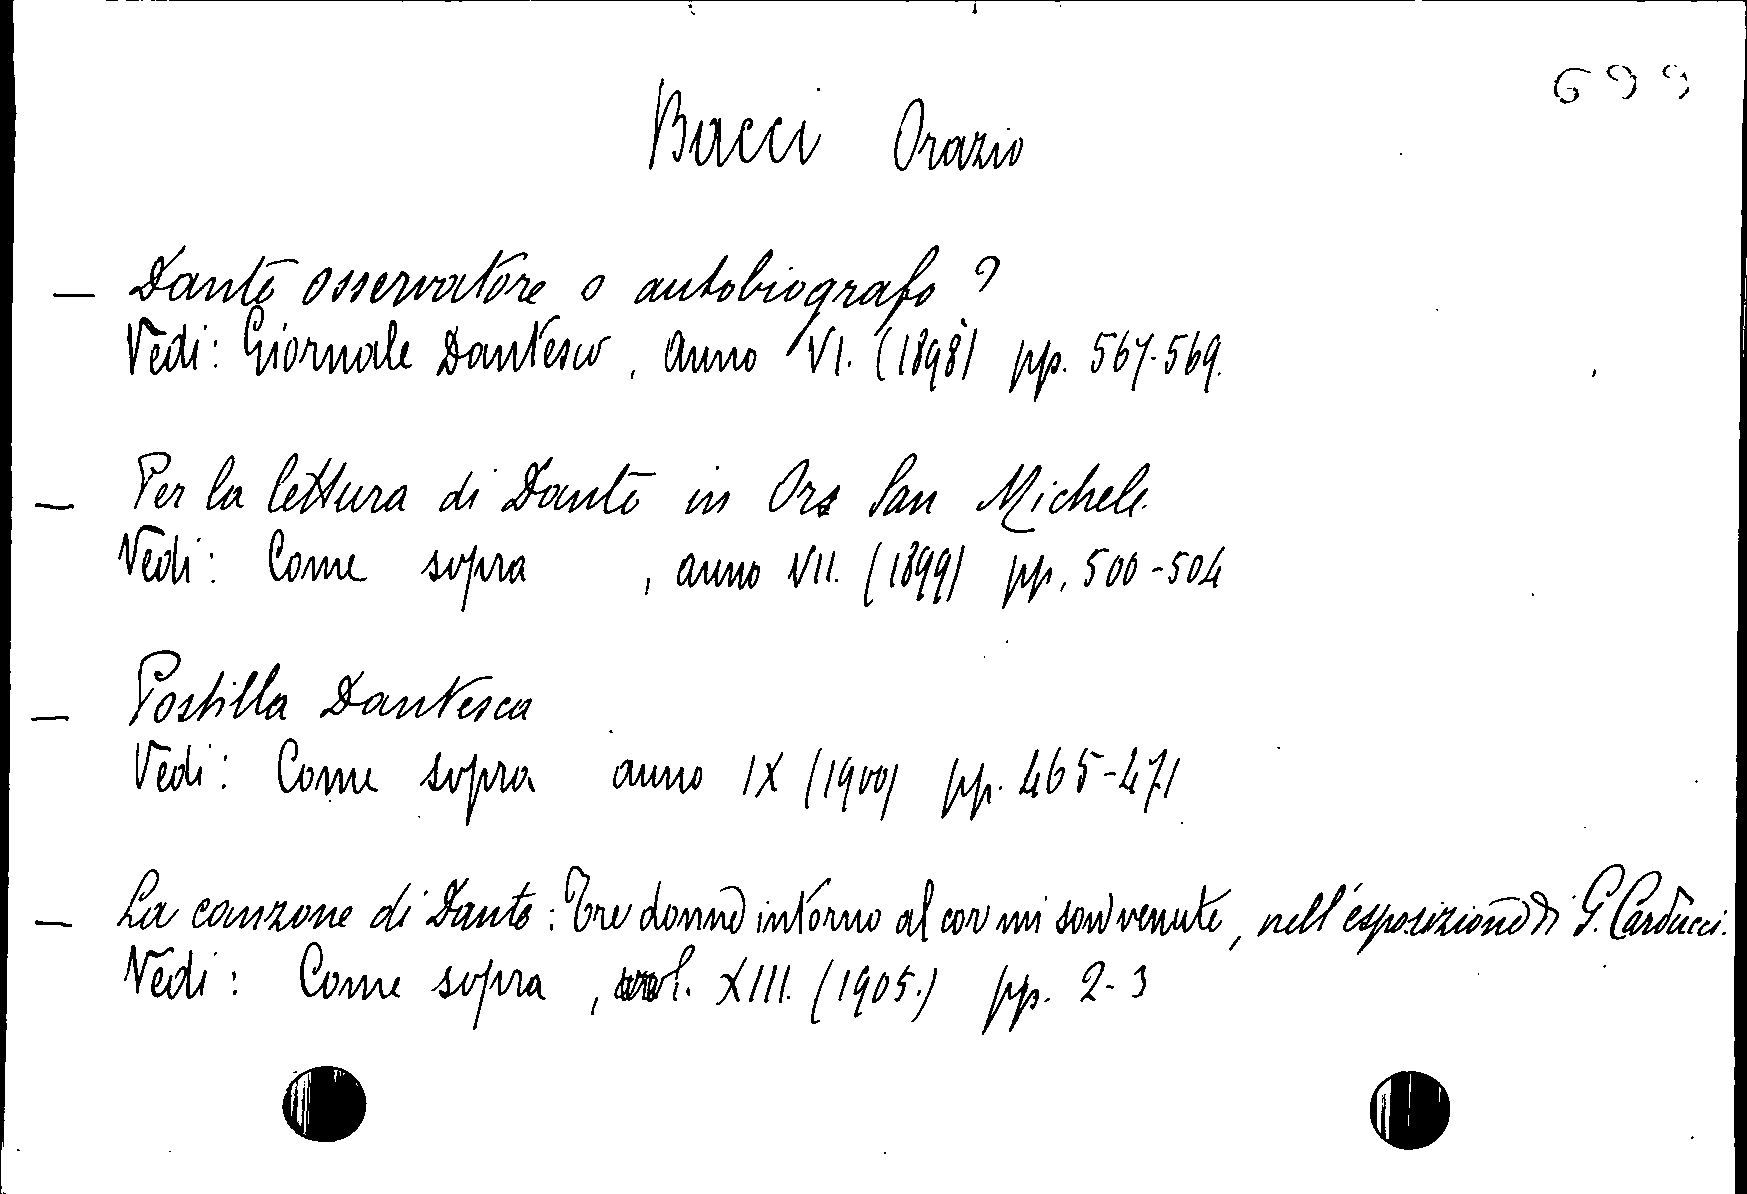 699
Bacci Orazio
— Dante osservatore o autobiografo?
Vedi: Giornale Dantesco, Anno VI. (1898) pp. 567-569.
— Per la lettura di Dante in Ors San Michele.
Vedi: Come sopra , anno VII. (1899) pp. 500-504
— Postilla Dantesca
Vedi: Come sopra anno IX (1900) pp. 465-471
— La canzone di Dante: Tre donne intorno al cor mi son venute, nell'esposizione di G. Carducci.
Vedi: Come sopra , vol. XIII. (1905.) pp. 2-3